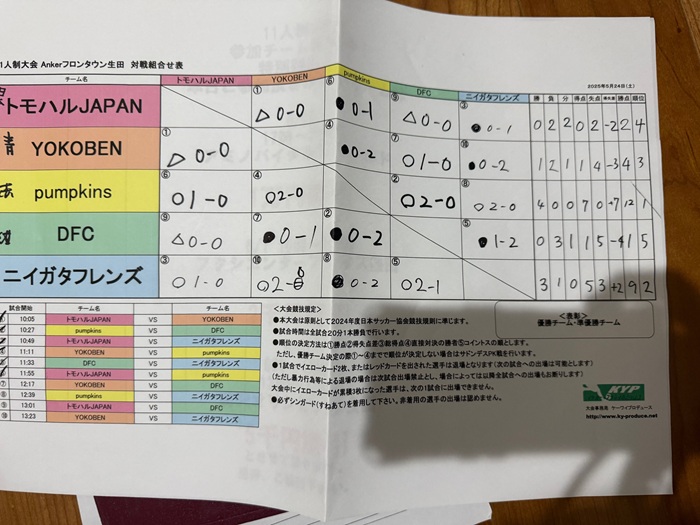 1人制大会 Ankerフロンタウン生田 対戦組合せ表
2025年5月24日(土)
チーム名 トモハルJAPAN YOKOBEN pumpkins DFC ニイガタフレンズ 勝 負 分 得点 失点 勝点 順位
トモハルJAPAN ① △ 0-0 ⑥ ● 0-1 ⑨ △ 0-0 ③ ● 0-1 0 2 2 0 2 -2 2 4
青 YOKOBEN ① △ 0-0 ④ ● 0-2 ⑦ ○ 1-0 ⑩ ● 0-2 1 2 1 1 4 -3 4 3
pumpkins ⑥ ○ 1-0 ④ ○ 2-0 ② ○ 2-0 ⑧ ○ 2-0 4 0 0 7 0 +7 12 1
DFC ⑨ △ 0-0 ⑦ ● 0-1 ② ● 0-2 ⑤ ● 1-2 0 3 1 1 5 -4 1 5
ニイガタフレンズ ③ ○ 1-0 ⑩ ○ 2-0 ⑧ ● 0-2 ⑤ ○ 2-1 3 1 0 5 3 +2 9 2
試合開始 チーム名 チーム名
10:05 トモハルJAPAN VS YOKOBEN
10:27 pumpkins VS DFC
10:49 トモハルJAPAN VS ニイガタフレンズ
11:11 YOKOBEN VS pumpkins
11:33 DFC VS ニイガタフレンズ
11:55 トモハルJAPAN VS pumpkins
⑦ 12:17 YOKOBEN VS DFC
⑧ 12:39 pumpkins VS ニイガタフレンズ
⑨ 13:01 トモハルJAPAN VS DFC
⑩ 13:23 YOKOBEN VS ニイガタフレンズ
<大会競技規定>
●本大会は原則として2024年度日本サッカー協会競技規則に準じます。
●試合時間は全試合20分1本勝負で行います。
●順位の決定方法は①勝点②得失点差③総得点④直接対決の勝者⑤コイントスの順とします。
ただし、優勝チーム決定の際①~④までで順位が決定しない場合はサドンデスPK戦を行います。
●1試合でイエローカード2枚、またはレッドカードを出された選手は退場となります(次の試合への出場は可能とします)
(ただし暴力行為等による退場の場合は次試合出場禁止とし、場合によっては以降全試合への出場もお断りします)
大会中にイエローカードが累積3枚になった選手は、次の1試合に出場できません。
●必ずシンガード(すねあて)を着用して下さい。非着用の選手の出場は認めません。
<表彰>
優勝チーム・準優勝チーム
KYP
大会事務局 ケーワイプロデュース
http://www.ky-produce.net